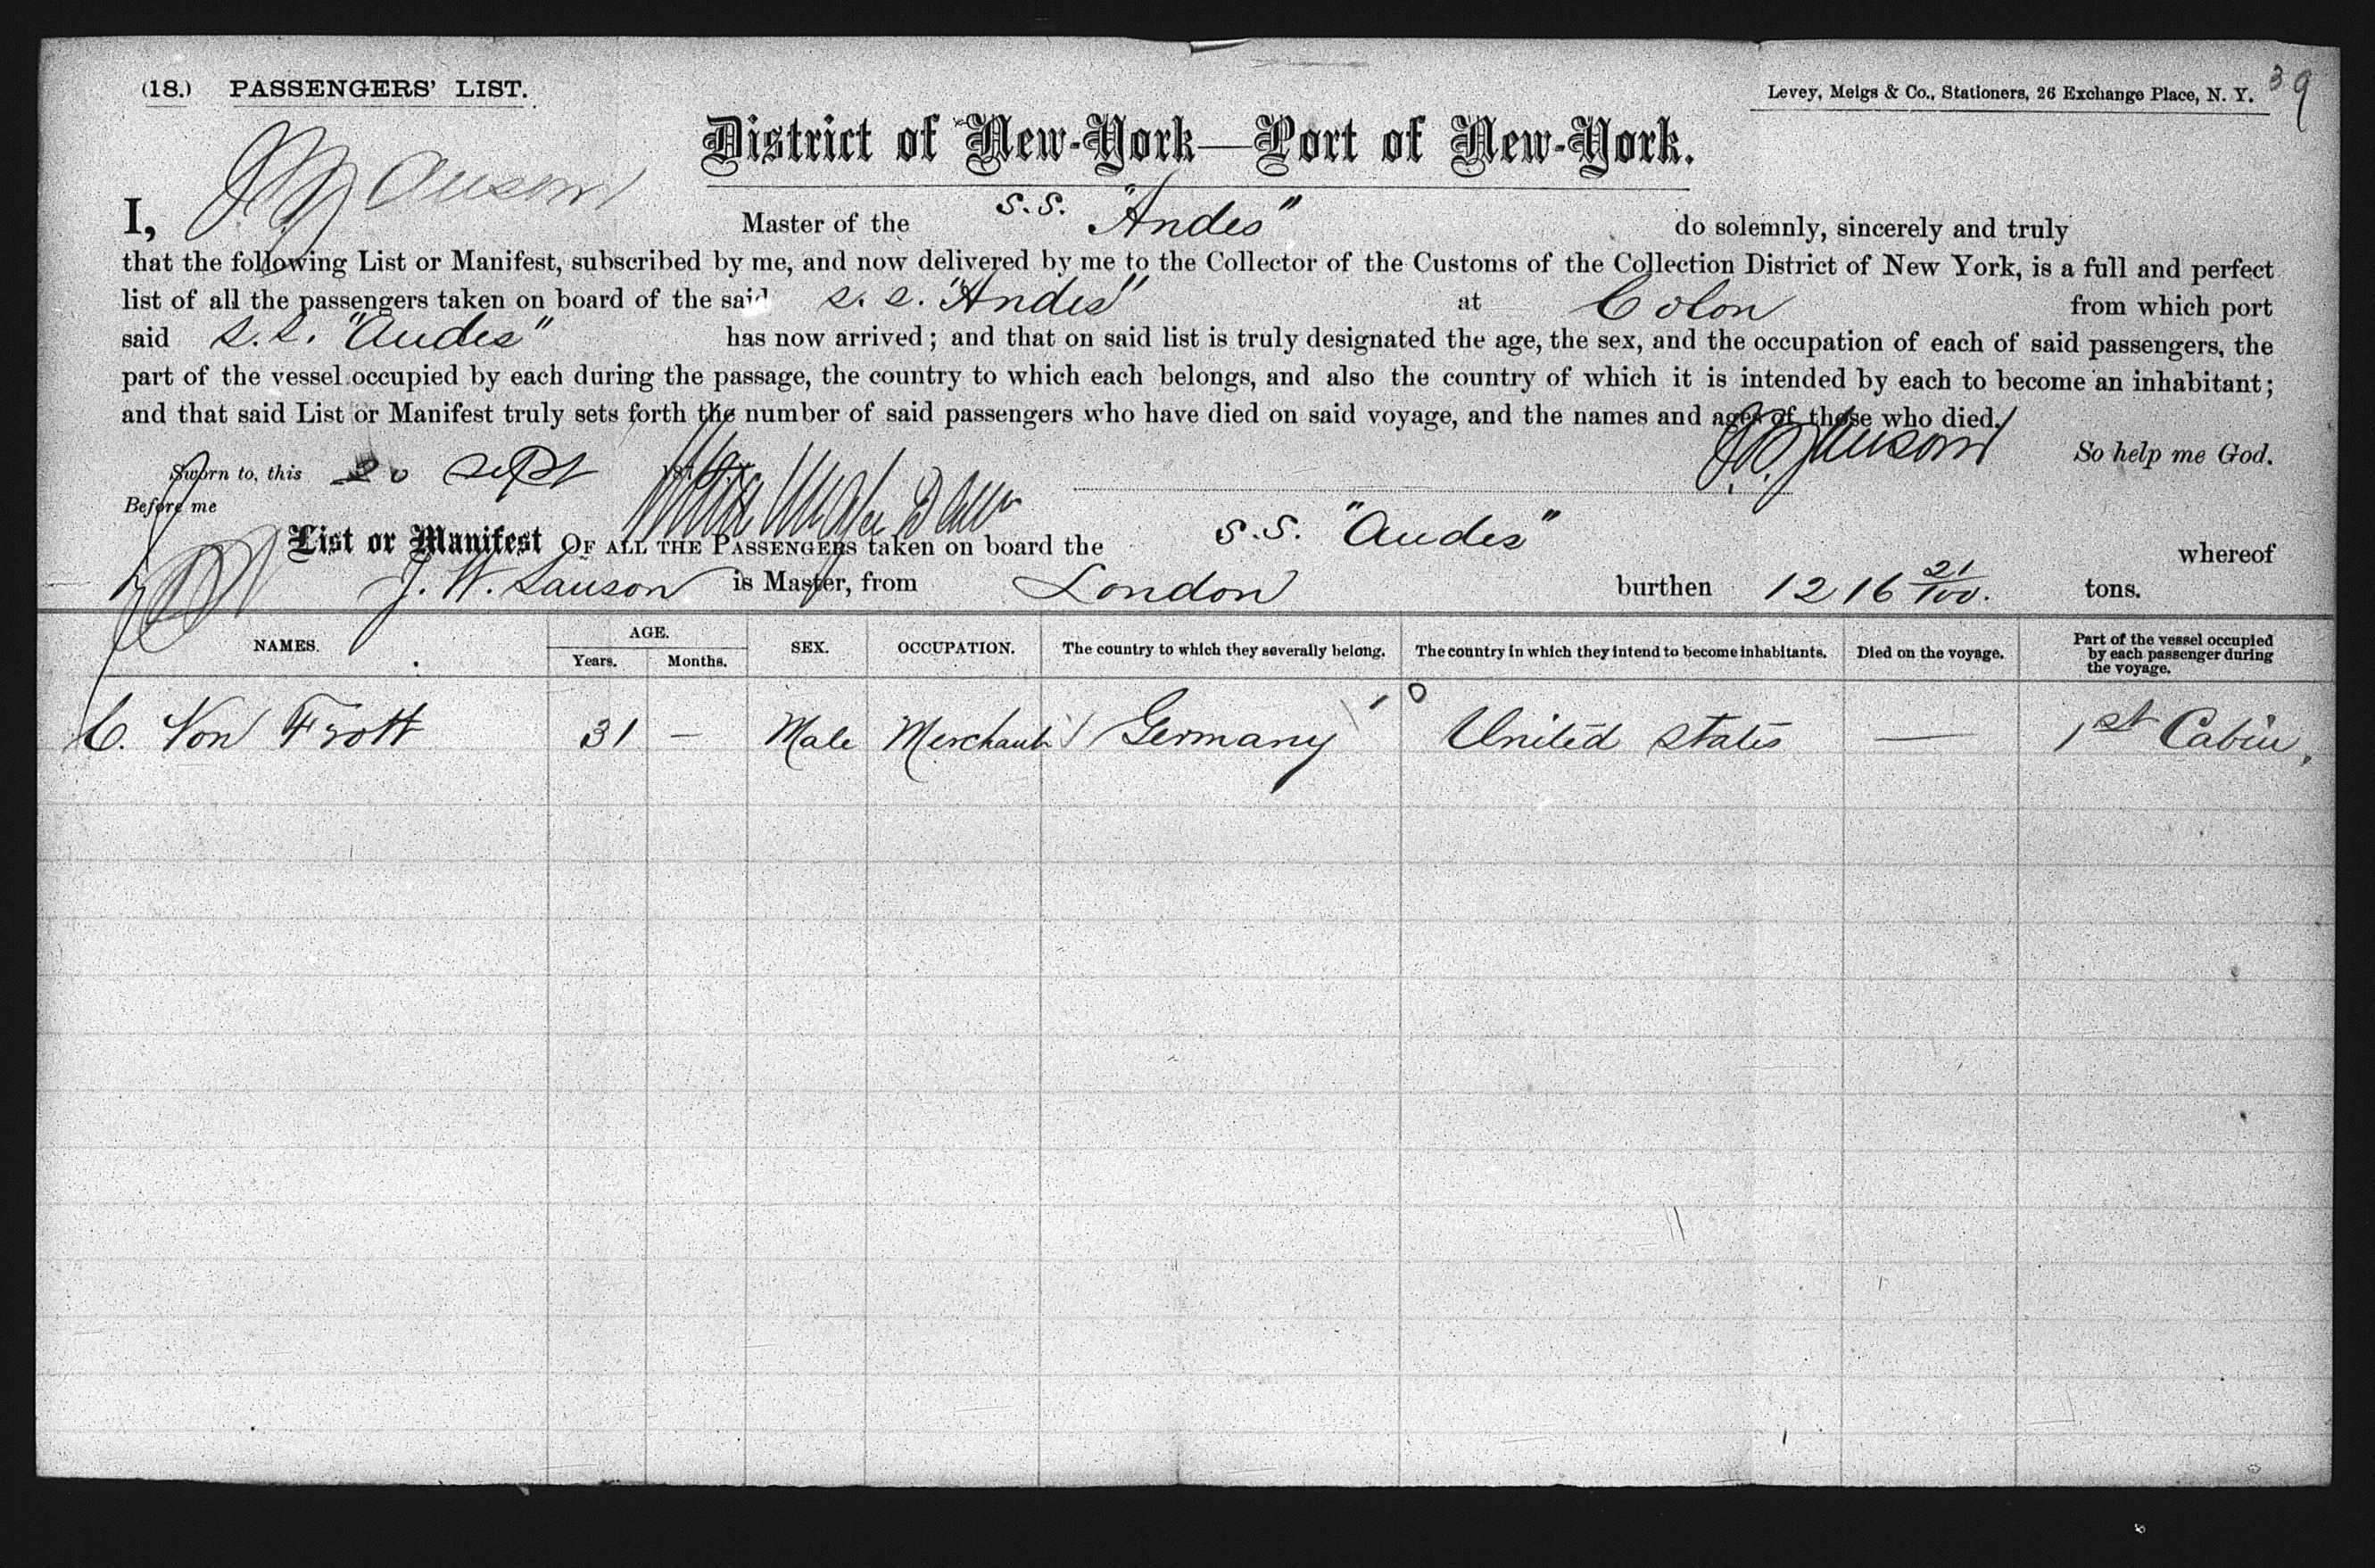 (18.) PASSENGERS' LIST.
Levey, Meigs & Co., Stationers, 26 Exchange Place, N. Y.
39
District of New-York—Port of New-York.
I, Master of the S.S. "Andes" do solemnly, sincerely and truly
that the following List or Manifest, subscribed by me, and now delivered by me to the Collector of the Customs of the Collection District of New York, is a full and perfect
list of all the passengers taken on board of the said S. S. "Andes" at Colon from which port
said S.S. "Andes" has now arrived; and that on said list is truly designated the age, the sex, and the occupation of each of said passengers, the
part of the vessel occupied by each during the passage, the country to which each belongs, and also the country of which it is intended by each to become an inhabitant;
and that said List or Manifest truly sets forth the number of said passengers who have died on said voyage, and the names and ages of those who died.
Sworn to, this 20 Sept 187 So help me God.
Before me
List or Manifest OF ALL THE PASSENGERS taken on board the S.S. "Andes" whereof
J. W. Sauson is Master, from London burthen 1216 21/100. tons.
NAMES. AGE. Years. Months. SEX. OCCUPATION. The country to which they severally belong. The country in which they intend to become inhabitants. Died on the voyage. Part of the vessel occupied by each passenger during the voyage.
C. Von Trott 31 — Male Merchant Germany United States — 1st Cabin.